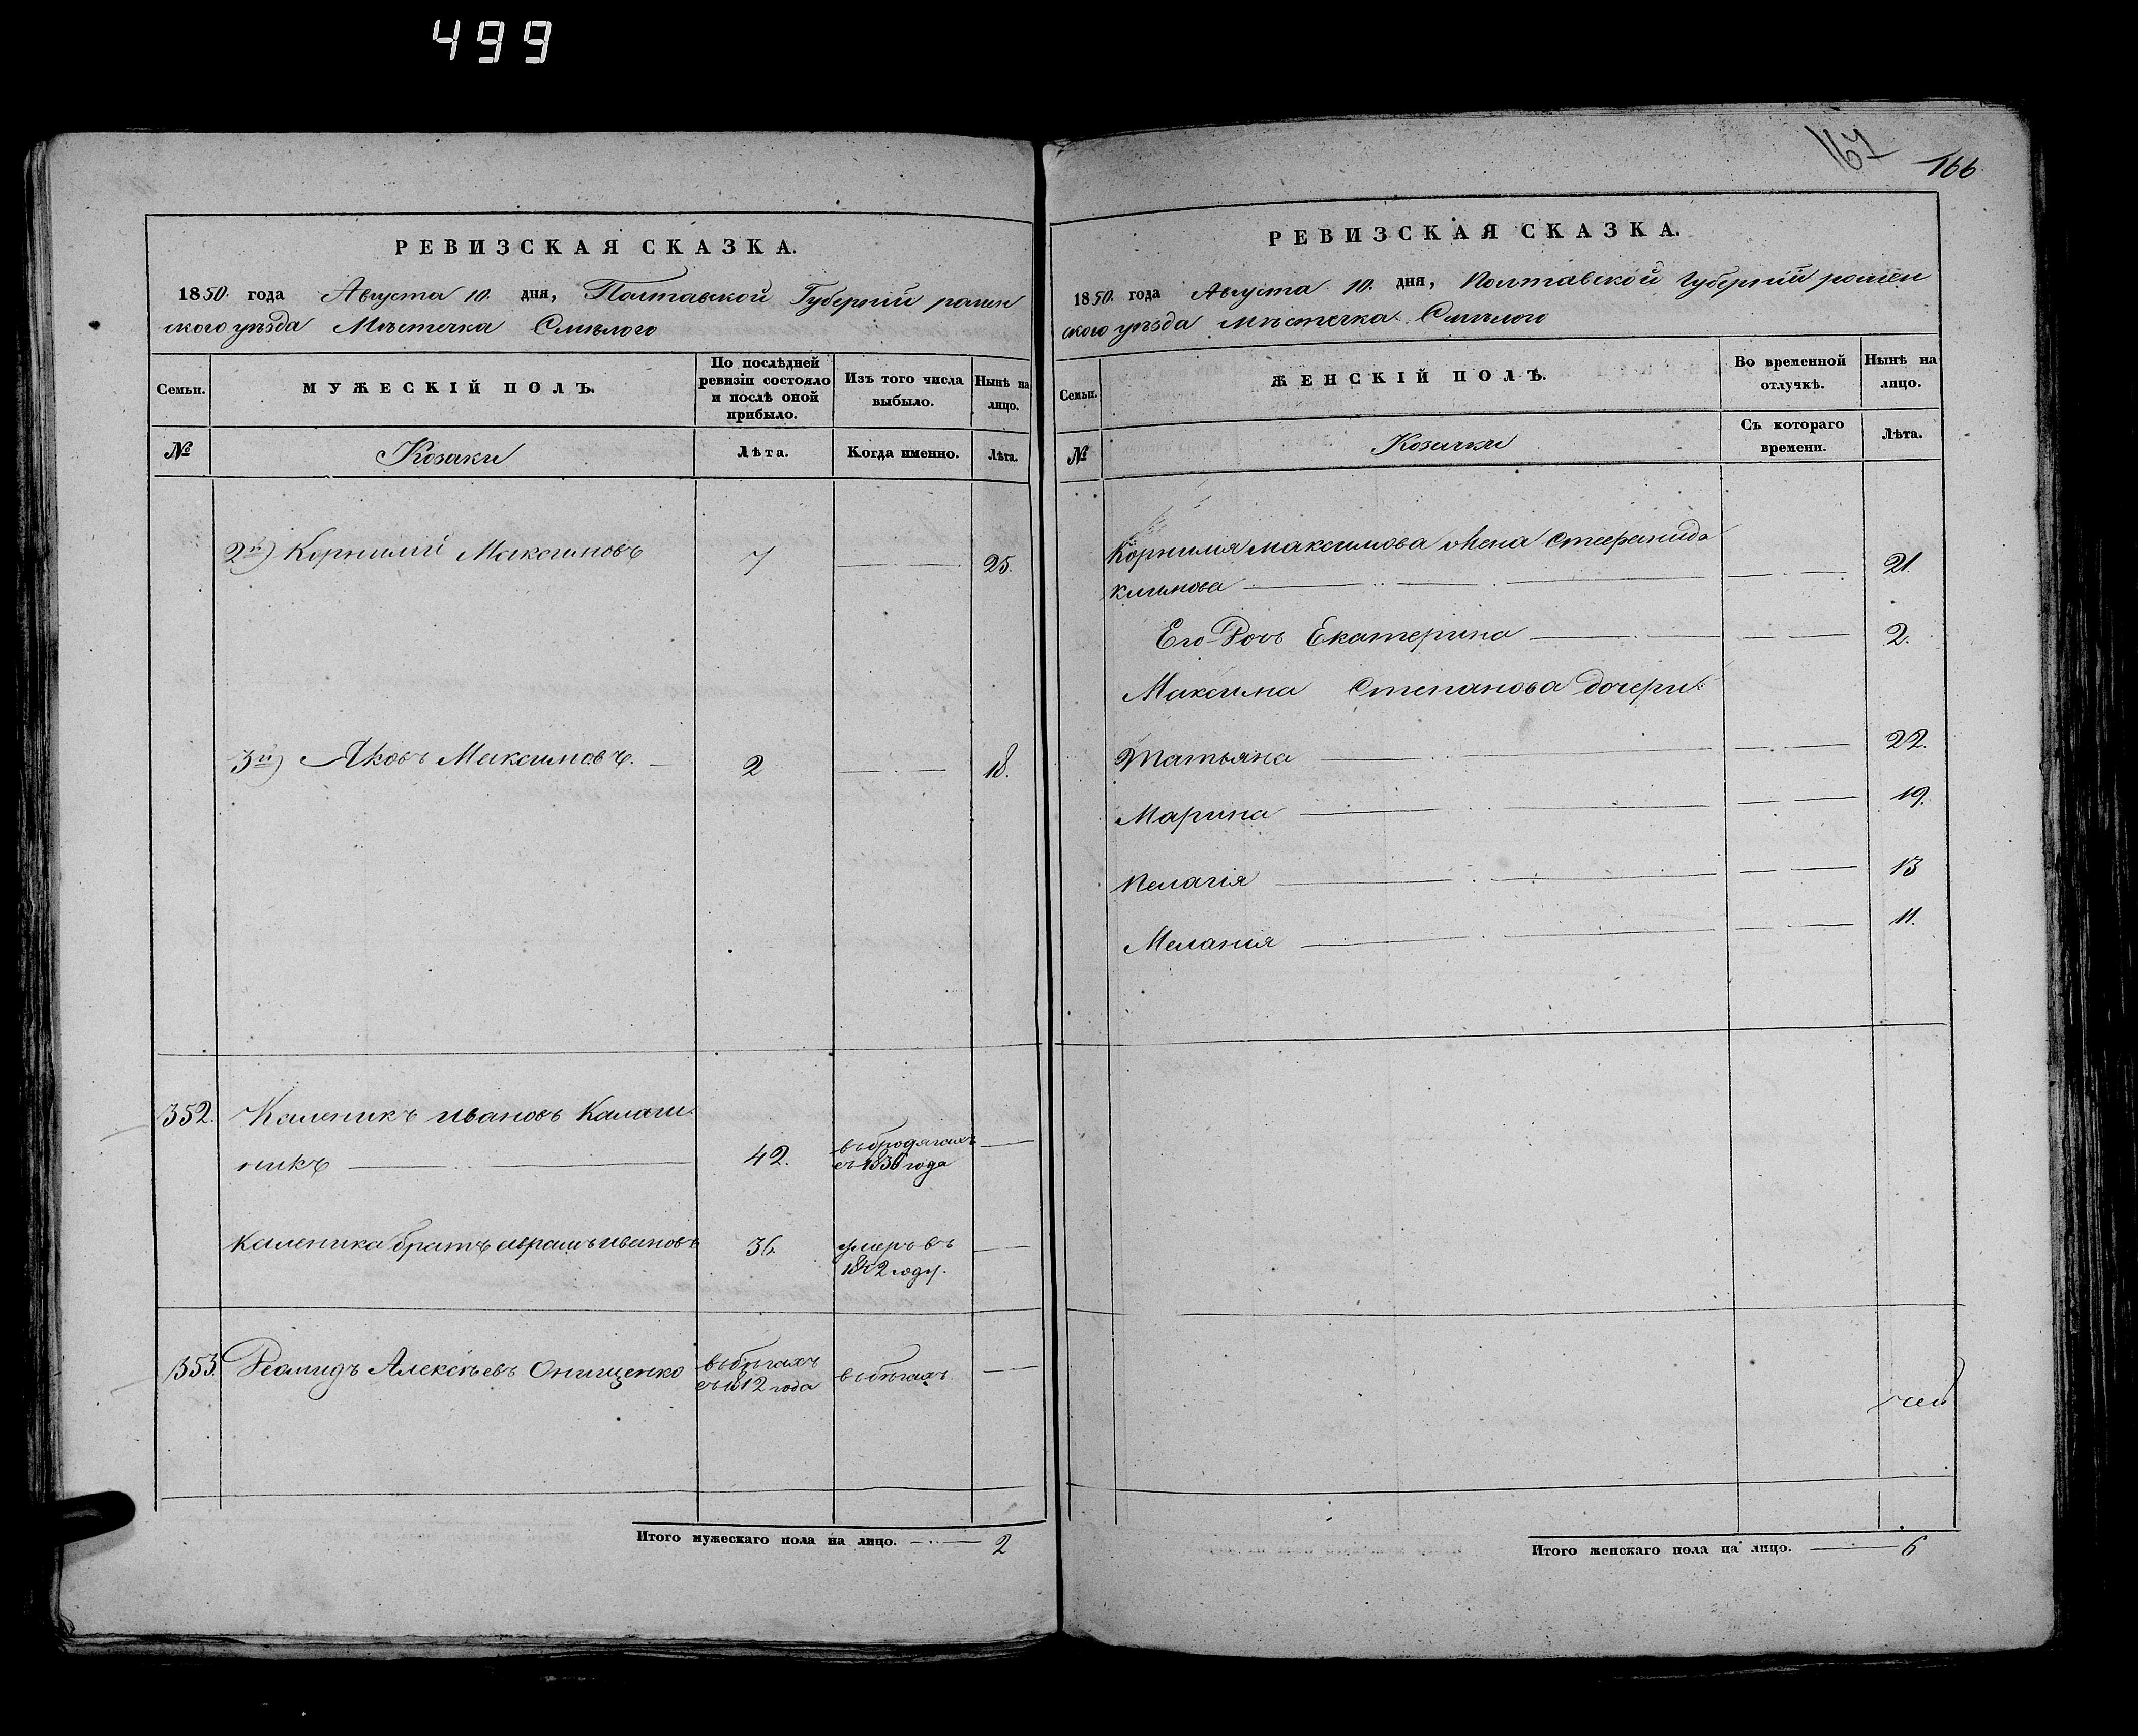 499
РЕВИЗСКАЯ СКАЗКА.
1850. года Августа 10. дня, Полтавской Губерніи ромен
ского уѣзда Мѣстечка Смѣлого
Семьи. МУЖЕСКІЙ ПОЛЪ. По послѣдней ревизіи состояло и послѣ оной прибыло. Изъ того числа выбыло. Нынѣ на лицо.
№ Козаки Лѣта. Когда именно. Лѣта.
2й) Корнилій Максимовъ 7 25.
3й) Яковъ Максимовъ. 2 18.
352. Каленикъ ивановъ Калаш
никъ 42. въ бродягахъ съ 1836 года
Каленика братъ аврамъ ивановъ 36 умеръ въ 1842 году.
353. Демидъ Алексѣевъ Онищенко въ бѣгахъ съ 1812 года въ бѣгахъ.
Итого мужескаго пола на лицо. 2
167 166
РЕВИЗСКАЯ СКАЗКА.
1850. года Августа 10. дня, Полтавской Губерніи ромен
ского уѣзда Мѣстечка Смѣлого
Семьи. ЖЕНСКІЙ ПОЛЪ. Во временной отлучкѣ. Нынѣ на лицо.
№ Козачки Съ котораго времени. Лѣта.
Корнилія максимова жена Стефанида
климова 21.
Его Дочь Екатерина 2.
Максима Степанова дочери:
Татьяна 22.
Марина 19.
Пелагія 13
Меланія 11.
Итого женскаго пола на лицо. 6